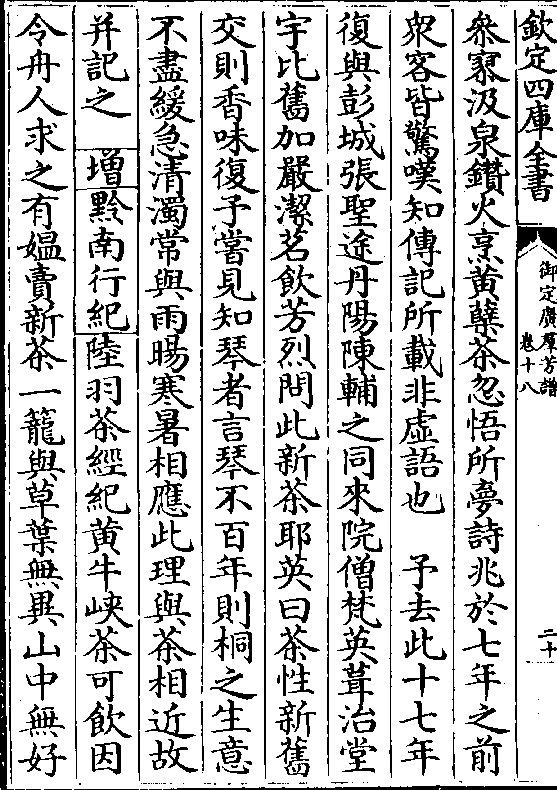 欽定四庫全書
御定廣羣芳譜
卷十八
二十
叅寥汲泉鑽火烹黄蘗茶忽悟所夢詩兆於七年之前
衆客皆驚嘆知傳記所載非虚語也　予去此十七年
復與彭城張聖途丹陽陳輔之同來院僧梵英葺治堂
宇比舊加嚴潔茗飲芳烈問此新茶耶英曰茶性新舊
交則香味復予嘗見知琴者言琴不百年則桐之生意
不盡緩急清濁常與雨暘寒暑相應此理與茶相近故
并記之　增黔南行紀陸羽茶經紀黄牛峽茶可飲因
令舟人求之有媪賣新茶一籠與草葉無異山中無好